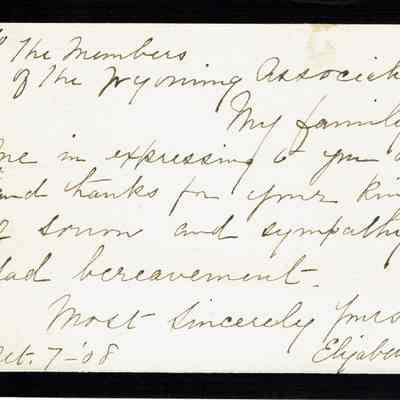 The Members
of the Wyoming Associat
My family
me in expressing to you
and thanks for your kin
of sorrow and sympathy
sad bereavement.
Most Sincerely Yours
Oct. 7-'08
Elizabe